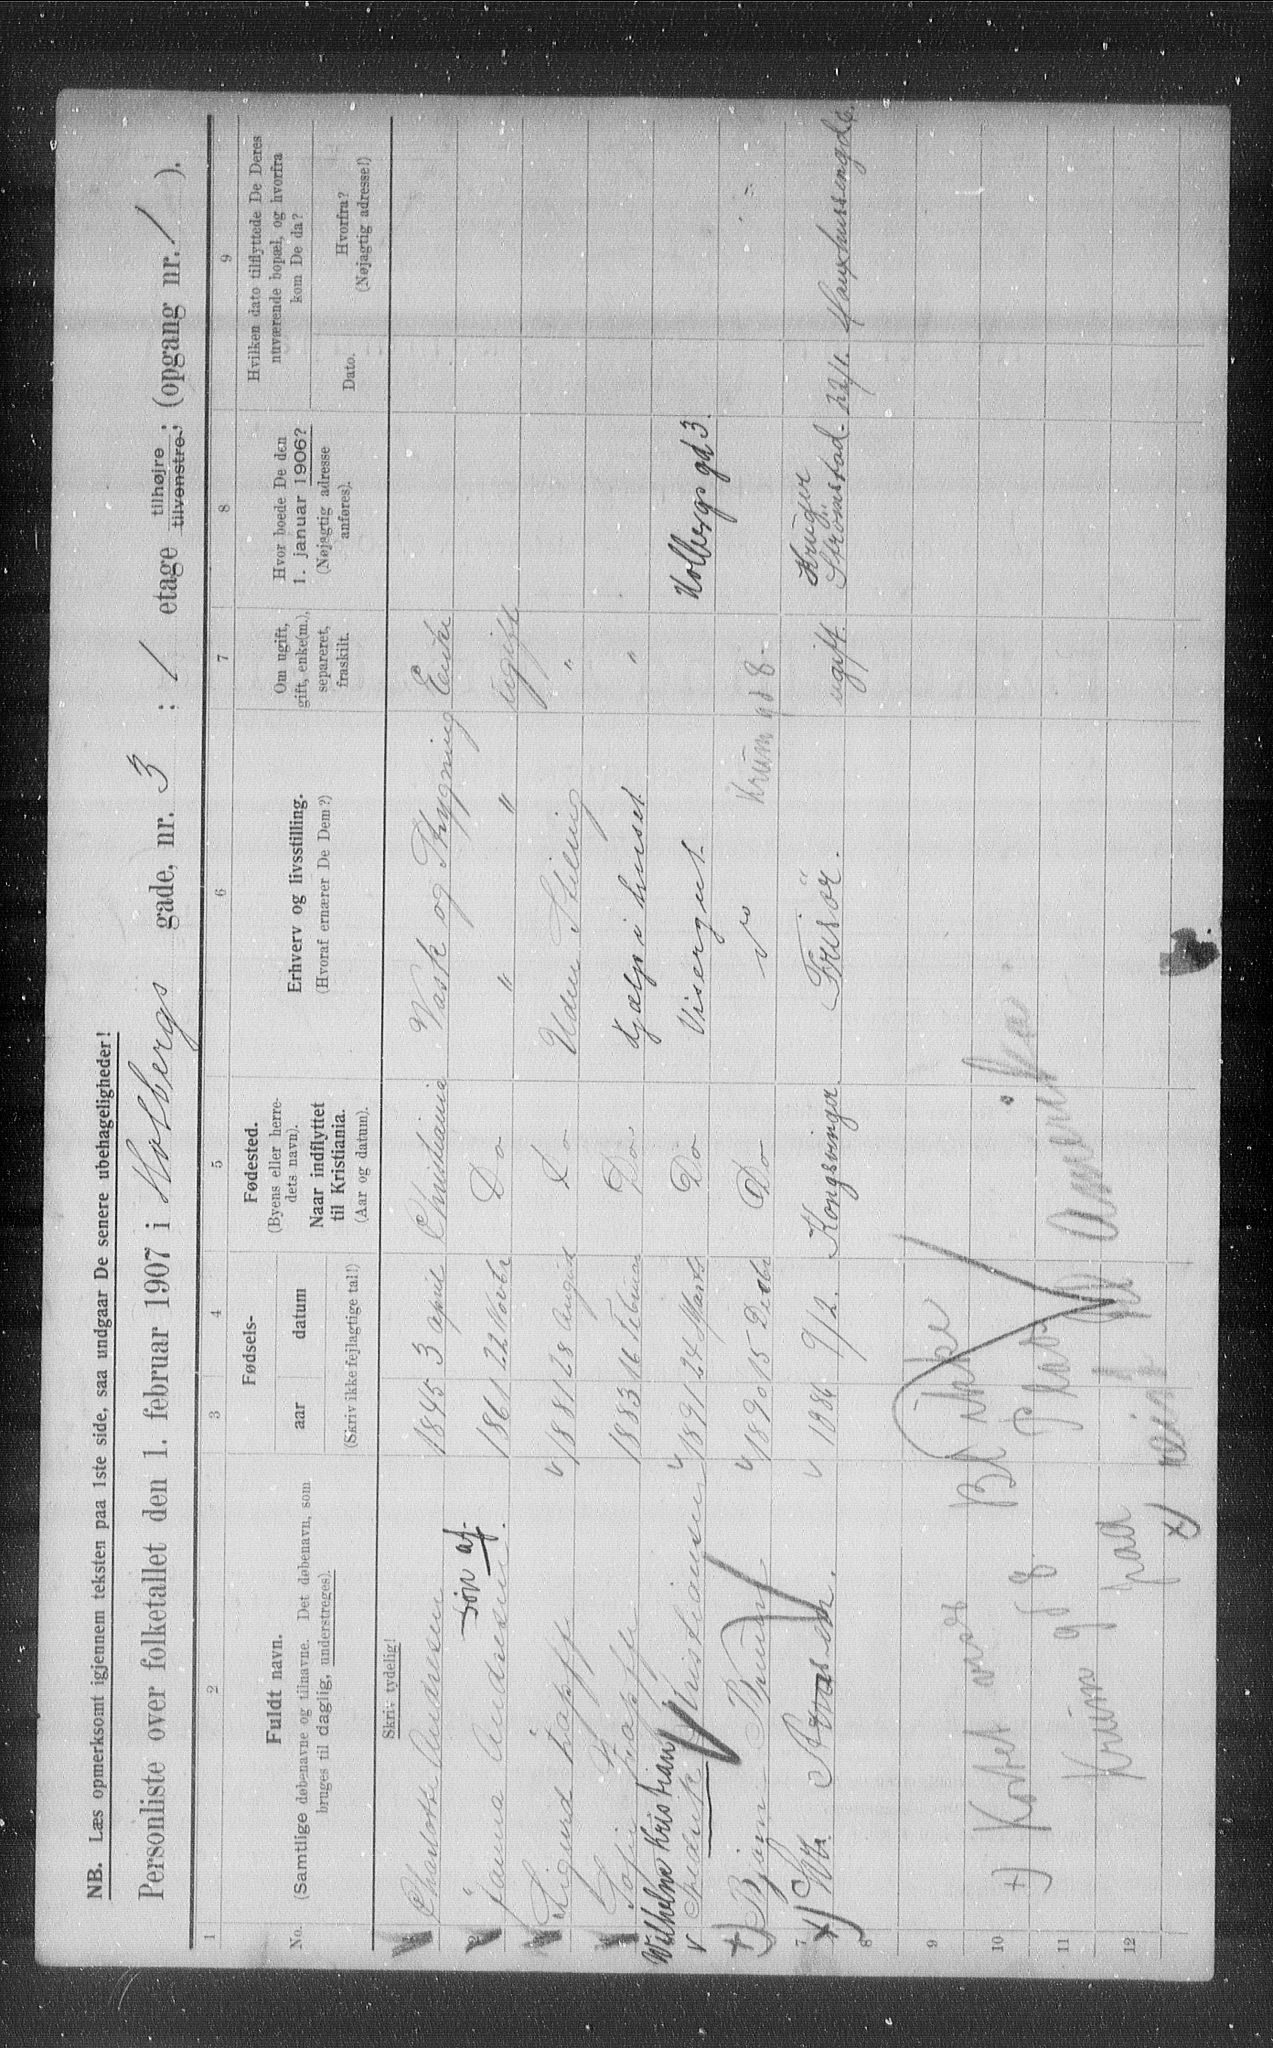 NB. Læs opmerksomt igjennem teksten paa 1ste side, saa undgaar De senere ubehageligheder!
Personliste over folketallet den 1. februar 1907 i Holbergs gade, nr. 3 ; 1 etage tilhøjre tilvenstre, ; (opgang nr. 1 ).
1 2 3 4 5 6 7 8 9
No.
Fuldt navn.
(Samtlige døbenavne og tilnavne. Det døbenavn, som
bruges til daglig, understreges).
Fødsels-
aar datum
(Skriv ikke fejlagtige tal!)
Fødested.
(Byens eller herre-
dets navn).
Naar indflyttet
til Kristiania.
(Aar og datum).
Erhverv og livsstilling.
(Hvoraf ernærer De Dem?)
Om ugift,
gift, enke(m.),
separeret,
fraskilt.
Hvor boede De den
1. januar 1906?
(Nøjagtig adresse
anføres).
Hvilken dato tilflyttede De Deres
nuværende bopæl, og hvorfra
kom De da?
Dato.
Hvorfra?
(Nøjagtig adresse!)
Skriv tydelig!
Charlotte Andresen 1845 3 april Christiania Vask og Strygning Enke
Janna Andresen. 1861 22 Novbr Do " " ugift
søn af
Sigurd 1881 28 August Do Uden Stilling "
Sofie 1883 16 Februar Do Hjælp i huset "
Wilhelm Kristian
Fredrik Kristiansen 1891 24 Marts Do Visergut Holbergs gd 3.
+) 1890 15 Decbr Do do Krumgd 8 -
7
x) 1886 9/2. Kongsvinger Frisör. ugift. Strömstad. 22/1.
8
9
10
11
12
+) Kostet
Krumgd 8. Plads
x) reist til Amerika.